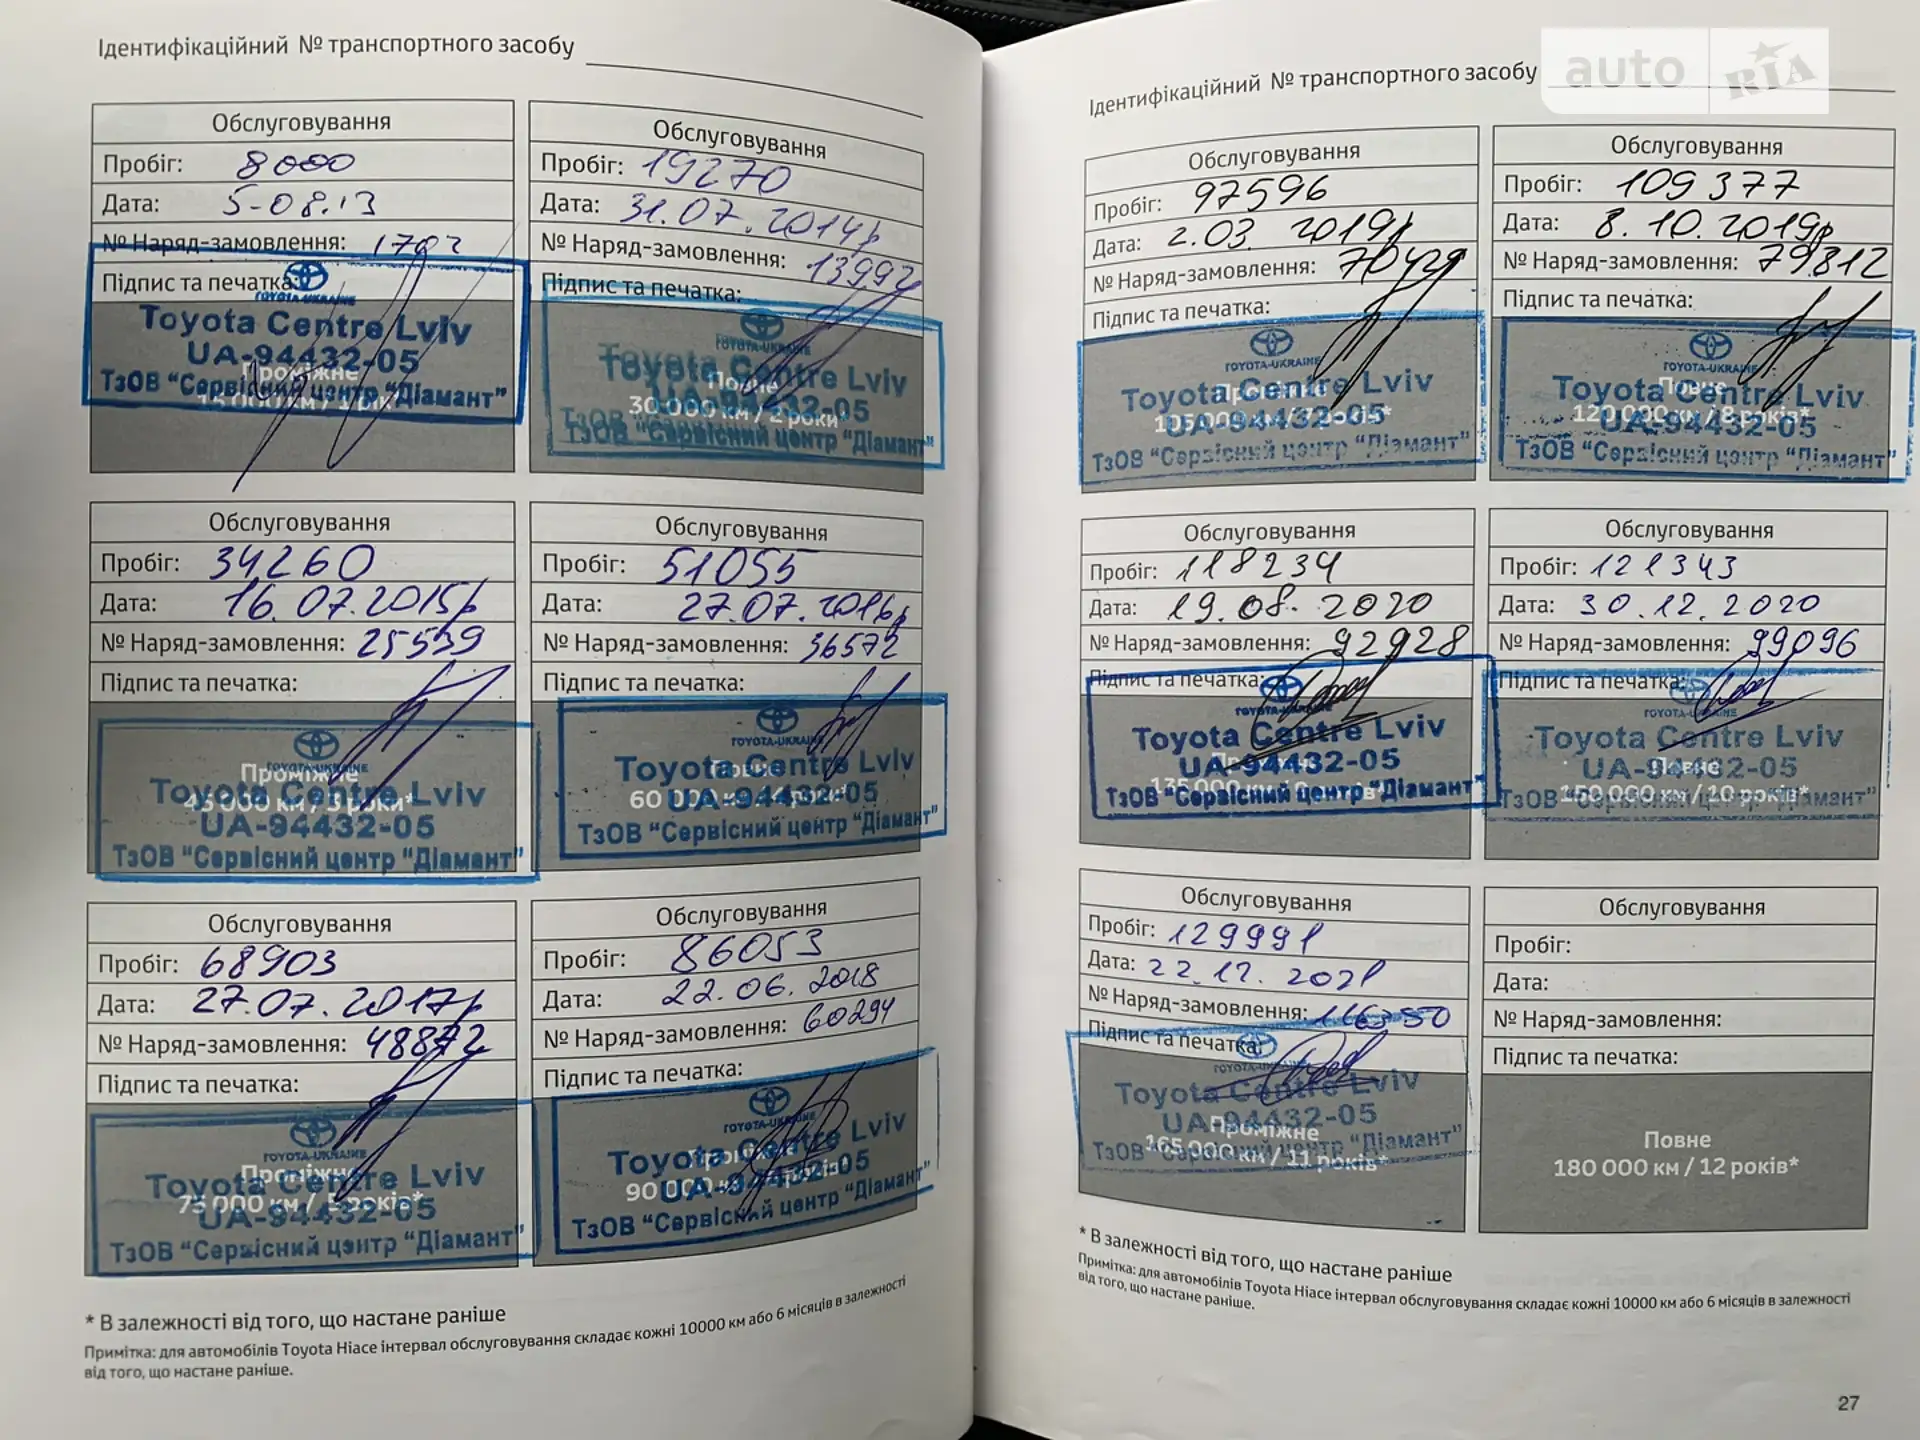 Ідентифікаційний № транспортного засобу
Обслуговування
Пробіг: 8000
Дата: 5-08.13
№ Наряд-замовлення: 1702
Підпис та печатка:
TOYOTA-UKRAINE
Toyota Centre Lviv
UA-94432-05
Проміжне
ТзОВ "Сервісний центр "Діамант"
15 000 км / 1 рік
Обслуговування
Пробіг: 19270
Дата: 31.07.2014р
№ Наряд-замовлення: 13992
Підпис та печатка:
TOYOTA-UKRAINE
Toyota Centre Lviv
Повне
UA-94432-05
30 000 км / 2 роки*
ТзОВ "Сервісний центр "Діамант"
Обслуговування
Пробіг: 34260
Дата: 16.07.2015р
№ Наряд-замовлення: 25539
Підпис та печатка:
TOYOTA-UKRAINE
Проміжне
Toyota Centre Lviv
45 000 км / 3 роки*
UA-94432-05
ТзОВ "Сервісний центр "Діамант"
Обслуговування
Пробіг: 51055
Дата: 27.07.2016р
№ Наряд-замовлення: 36572
Підпис та печатка:
TOYOTA-UKRAINE
Toyota Centre Lviv
Повне
UA-94432-05
60 000 км / 4 роки*
ТзОВ "Сервісний центр "Діамант"
Обслуговування
Пробіг: 68903
Дата: 27.07.2017р
№ Наряд-замовлення: 48872
Підпис та печатка:
TOYOTA-UKRAINE
Проміжне
Toyota Centre Lviv
75 000 км / 5 років*
UA-94432-05
ТзОВ "Сервісний центр "Діамант"
Обслуговування
Пробіг: 86053
Дата: 22.06.2018
№ Наряд-замовлення: 60294
Підпис та печатка:
TOYOTA-UKRAINE
Toyota Centre Lviv
UA-94432-05
90 000 км
ТзОВ "Сервісний центр "Діамант"
* В залежності від того, що настане раніше
Примітка: для автомобілів Toyota Hiace інтервал обслуговування складає кожні 10000 км або 6 місяців в залежності
від того, що настане раніше.
Ідентифікаційний № транспортного засобу
auto RIA
Обслуговування
Пробіг: 97596
Дата: 2.03.2019р
№ Наряд-замовлення: 70429
Підпис та печатка:
TOYOTA-UKRAINE
Toyota Centre Lviv
Проміжне
UA-94432-05
105 000 км / 7 років*
ТзОВ "Сервісний центр "Діамант"
Обслуговування
Пробіг: 109377
Дата: 8.10.2019р
№ Наряд-замовлення: 79812
Підпис та печатка:
TOYOTA-UKRAINE
Toyota Centre Lviv
Повне
120 000 км / 8 років*
UA-94432-05
ТзОВ "Сервісний центр "Діамант"
Обслуговування
Пробіг: 118234
Дата: 19.08.2020
№ Наряд-замовлення: 92928
Підпис та печатка:
TOYOTA-UKRAINE
Toyota Centre Lviv
UA-94432-05
135 000 км
ТзОВ "Сервісний центр "Діамант"
Обслуговування
Пробіг: 121343
Дата: 30.12.2020
№ Наряд-замовлення: 99096
Підпис та печатка:
TOYOTA-UKRAINE
Toyota Centre Lviv
UA-94432-05
Повне
150 000 км / 10 років*
ТзОВ "Сервісний центр "Діамант"
Обслуговування
Пробіг: 129991
Дата: 22.12.2021
№ Наряд-замовлення: 116350
Підпис та печатка:
TOYOTA-UKRAINE
Toyota Centre Lviv
UA-94432-05
Проміжне
165 000 км / 11 років*
ТзОВ "Сервісний центр "Діамант"
Обслуговування
Пробіг:
Дата:
№ Наряд-замовлення:
Підпис та печатка:
Повне
180 000 км / 12 років*
* В залежності від того, що настане раніше
Примітка: для автомобілів Toyota Hiace інтервал обслуговування складає кожні 10000 км або 6 місяців в залежності
від того, що настане раніше.
27